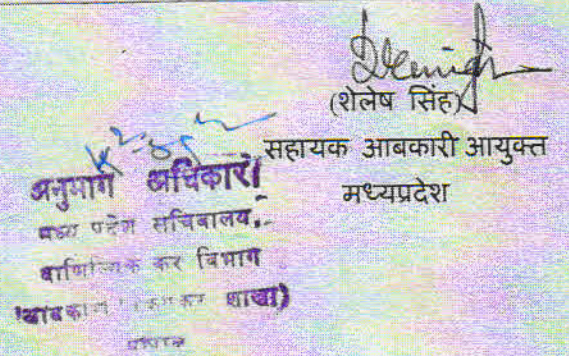 (शेलेष सिंह)
सहायक आबकारी आयुक्त
मध्यप्रदेश
अनुभाग अधिकारी
मध्य प्रदेश सचिवालय,
वाणिज्यिक कर विभाग
शाखा)